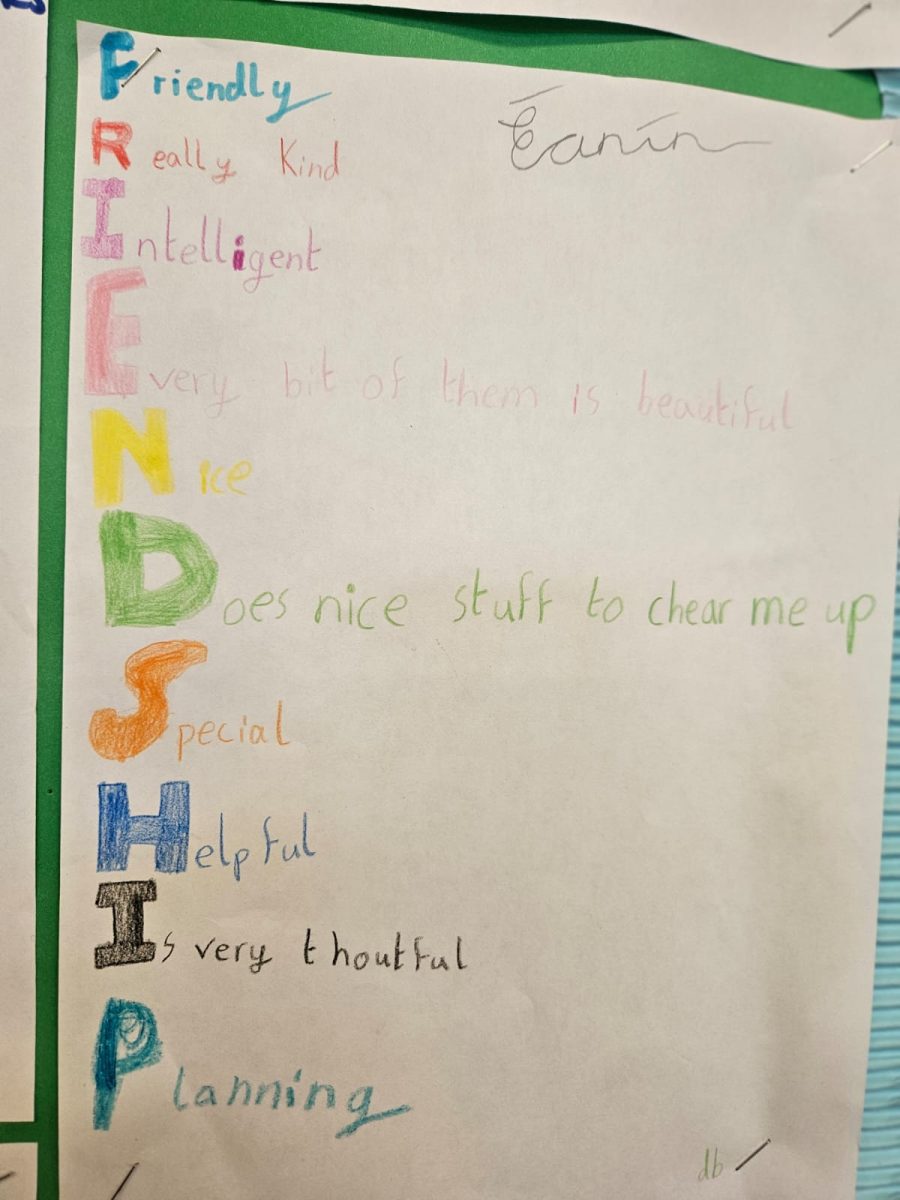 Friendly
Éanín
Really Kind
Intelligent
Every bit of them is beautiful
Nice
Does nice stuff to chear me up
Special
Helpful
Is very thoutful
Planning
db